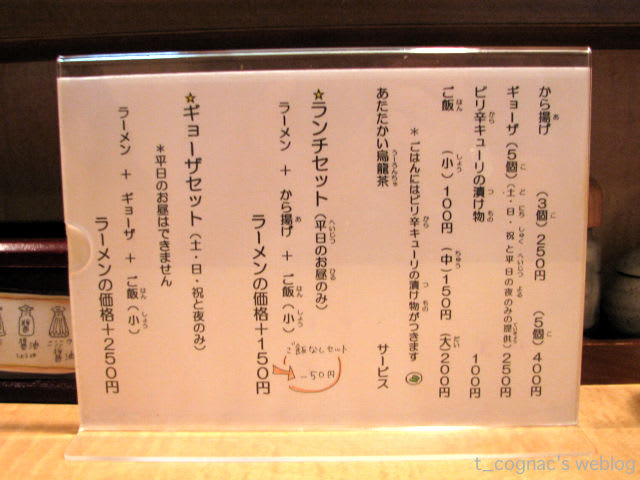 から揚げ (3個)250円 (5個)400円
ギョーザ(5個)(土・日・祝と平日の夜のみの提供)250円
ピリ辛キューリの漬け物 100円
ご飯 (小)100円 (中)150円 (大)200円
＊ごはんにはピリ辛キューリの漬け物がつきます
あたたかい烏龍茶 サービス
☆ランチセット(平日のお昼のみ)
ラーメン ＋ から揚げ ＋ ご飯(小)
ラーメンの価格＋150円
ご飯なしセット
－50円
☆ギョーザセット(土・日・祝と夜のみ)
＊平日のお昼はできません
ラーメン ＋ ギョーザ ＋ ご飯(小)
ラーメンの価格＋250円
t_cognac's weblog